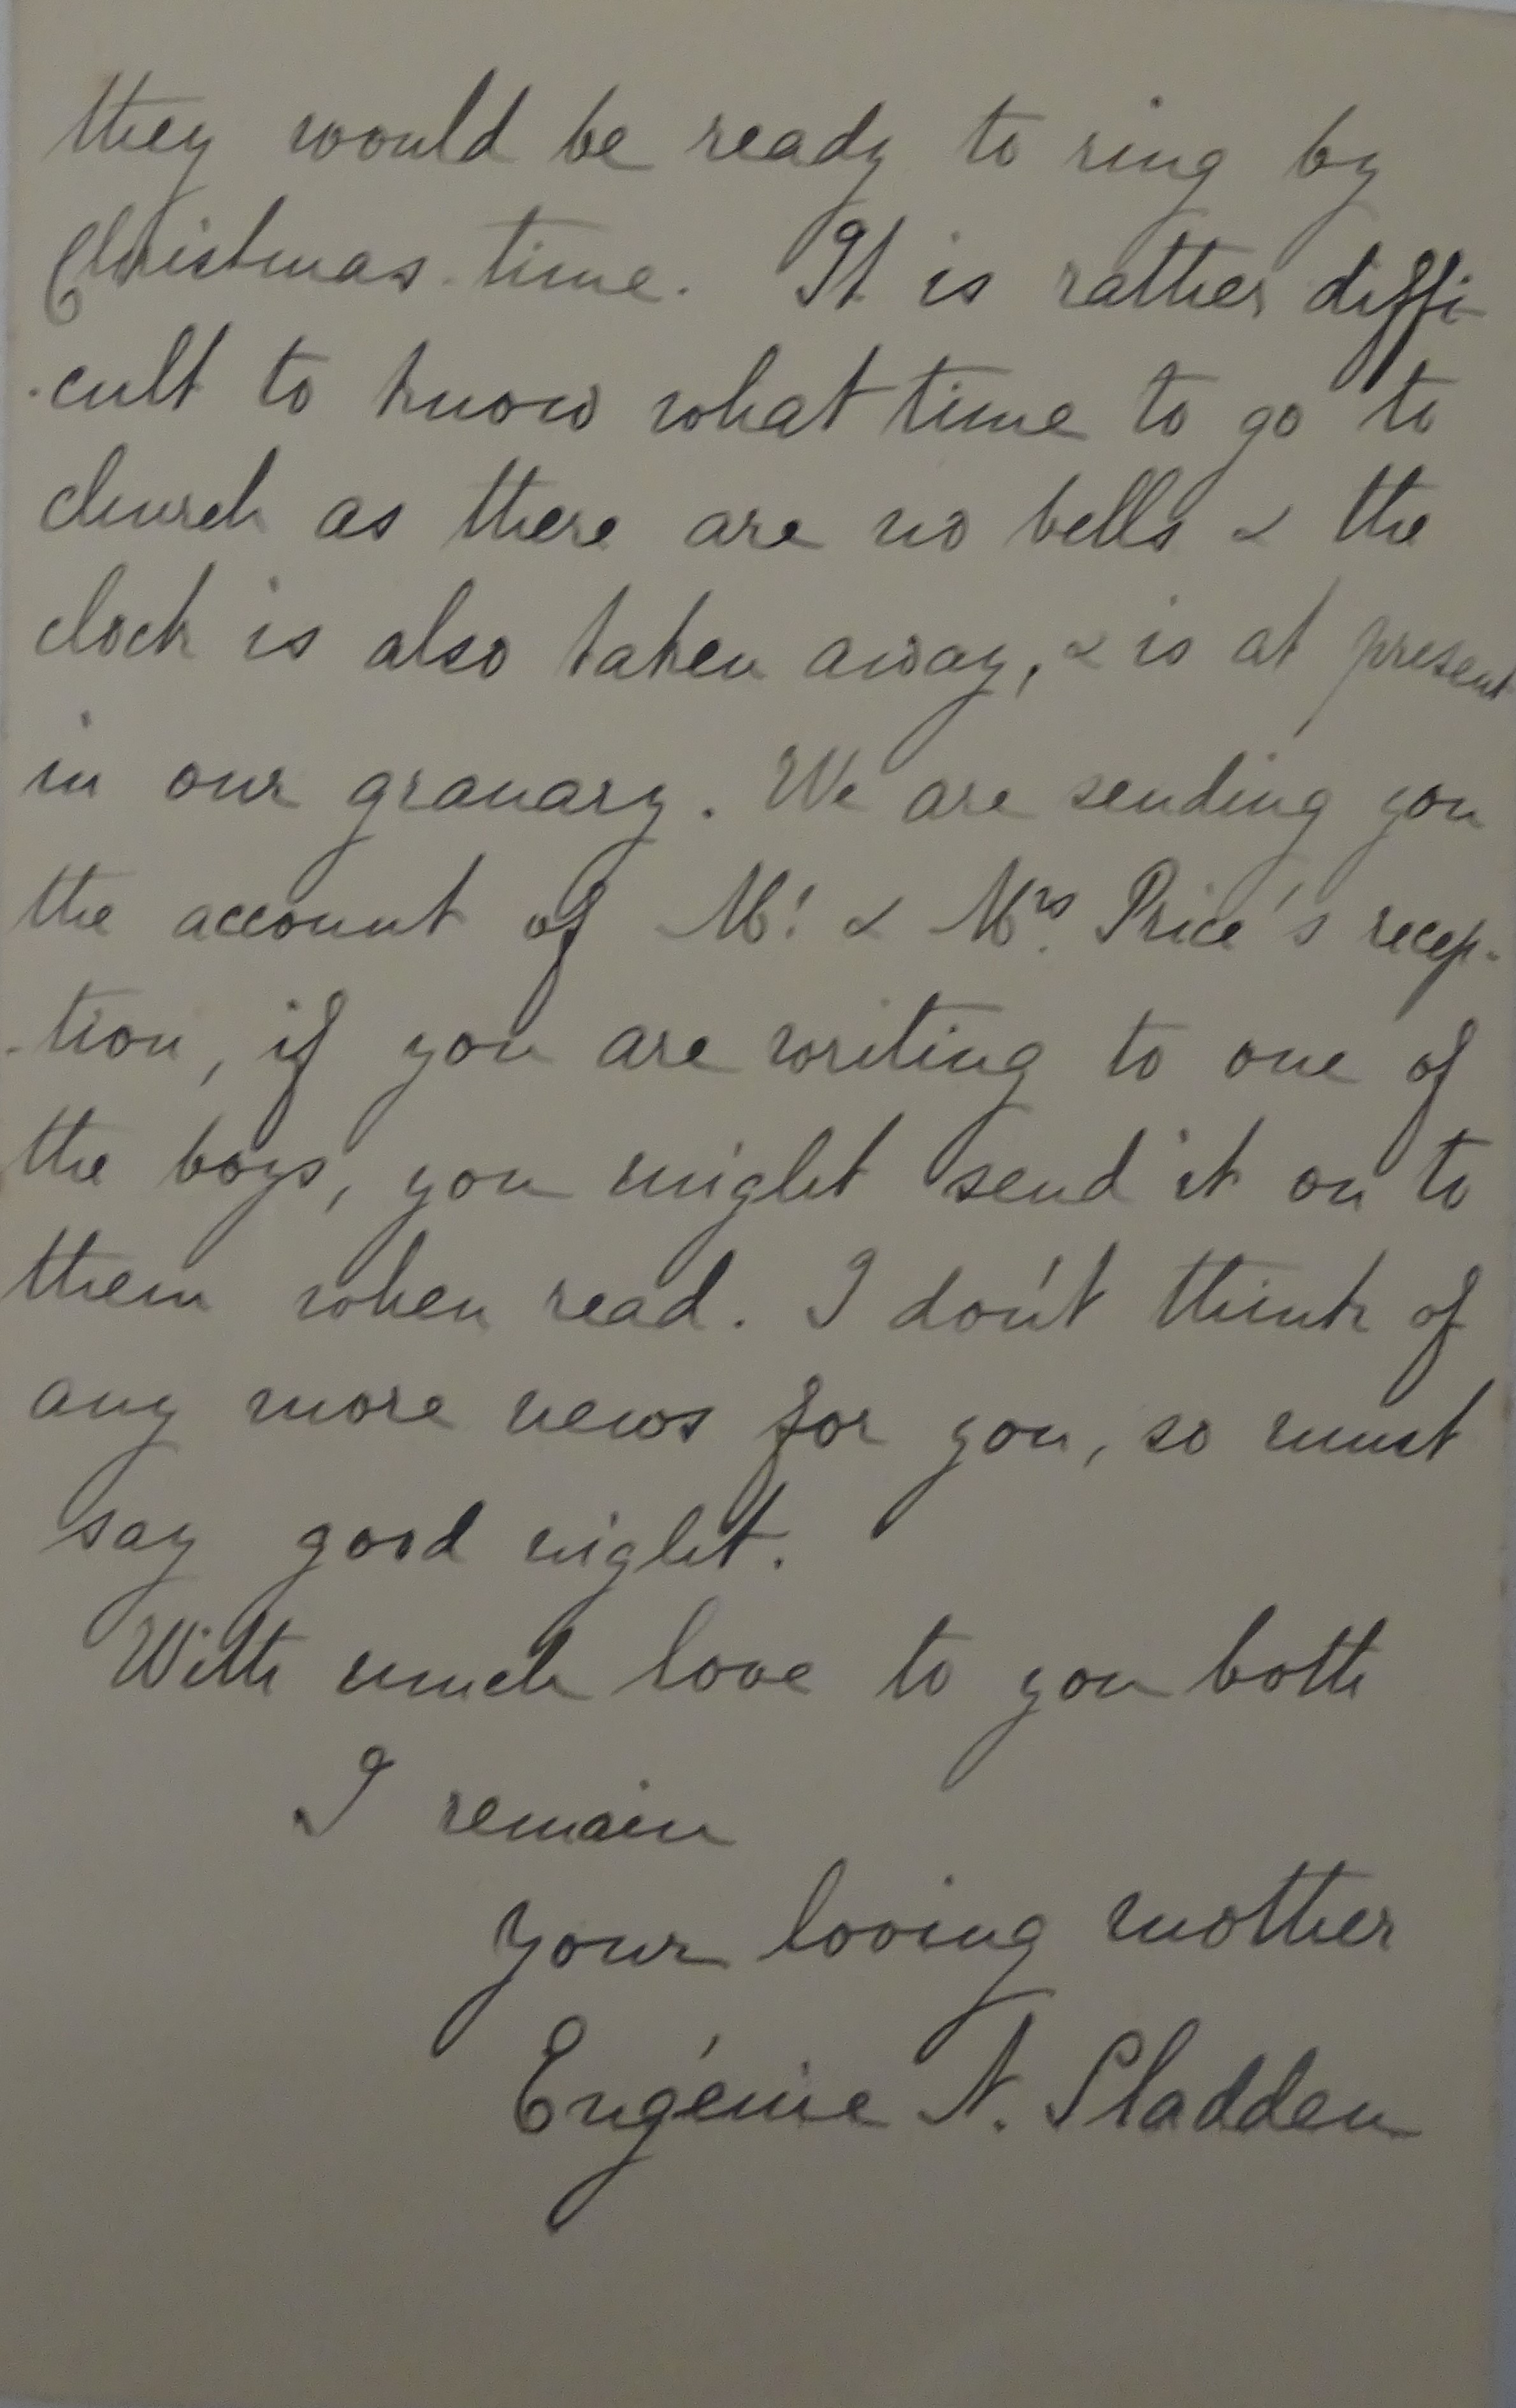 they would be ready to ring by
Christmas-time. It is rather diffi-
-cult to know what time to go to
church as there are no bells & the
clock is also taken away, & is at present
in our granary. We are sending you
the account of Mr. & Mrs. Price's recep-
-tion, if you are writing to one of
the boys, you might send it on to
them when read. I don't think of
any more news for you, so must
say good night.
With much love to you both
I remain
your loving mother
Eugénie N. Sladden